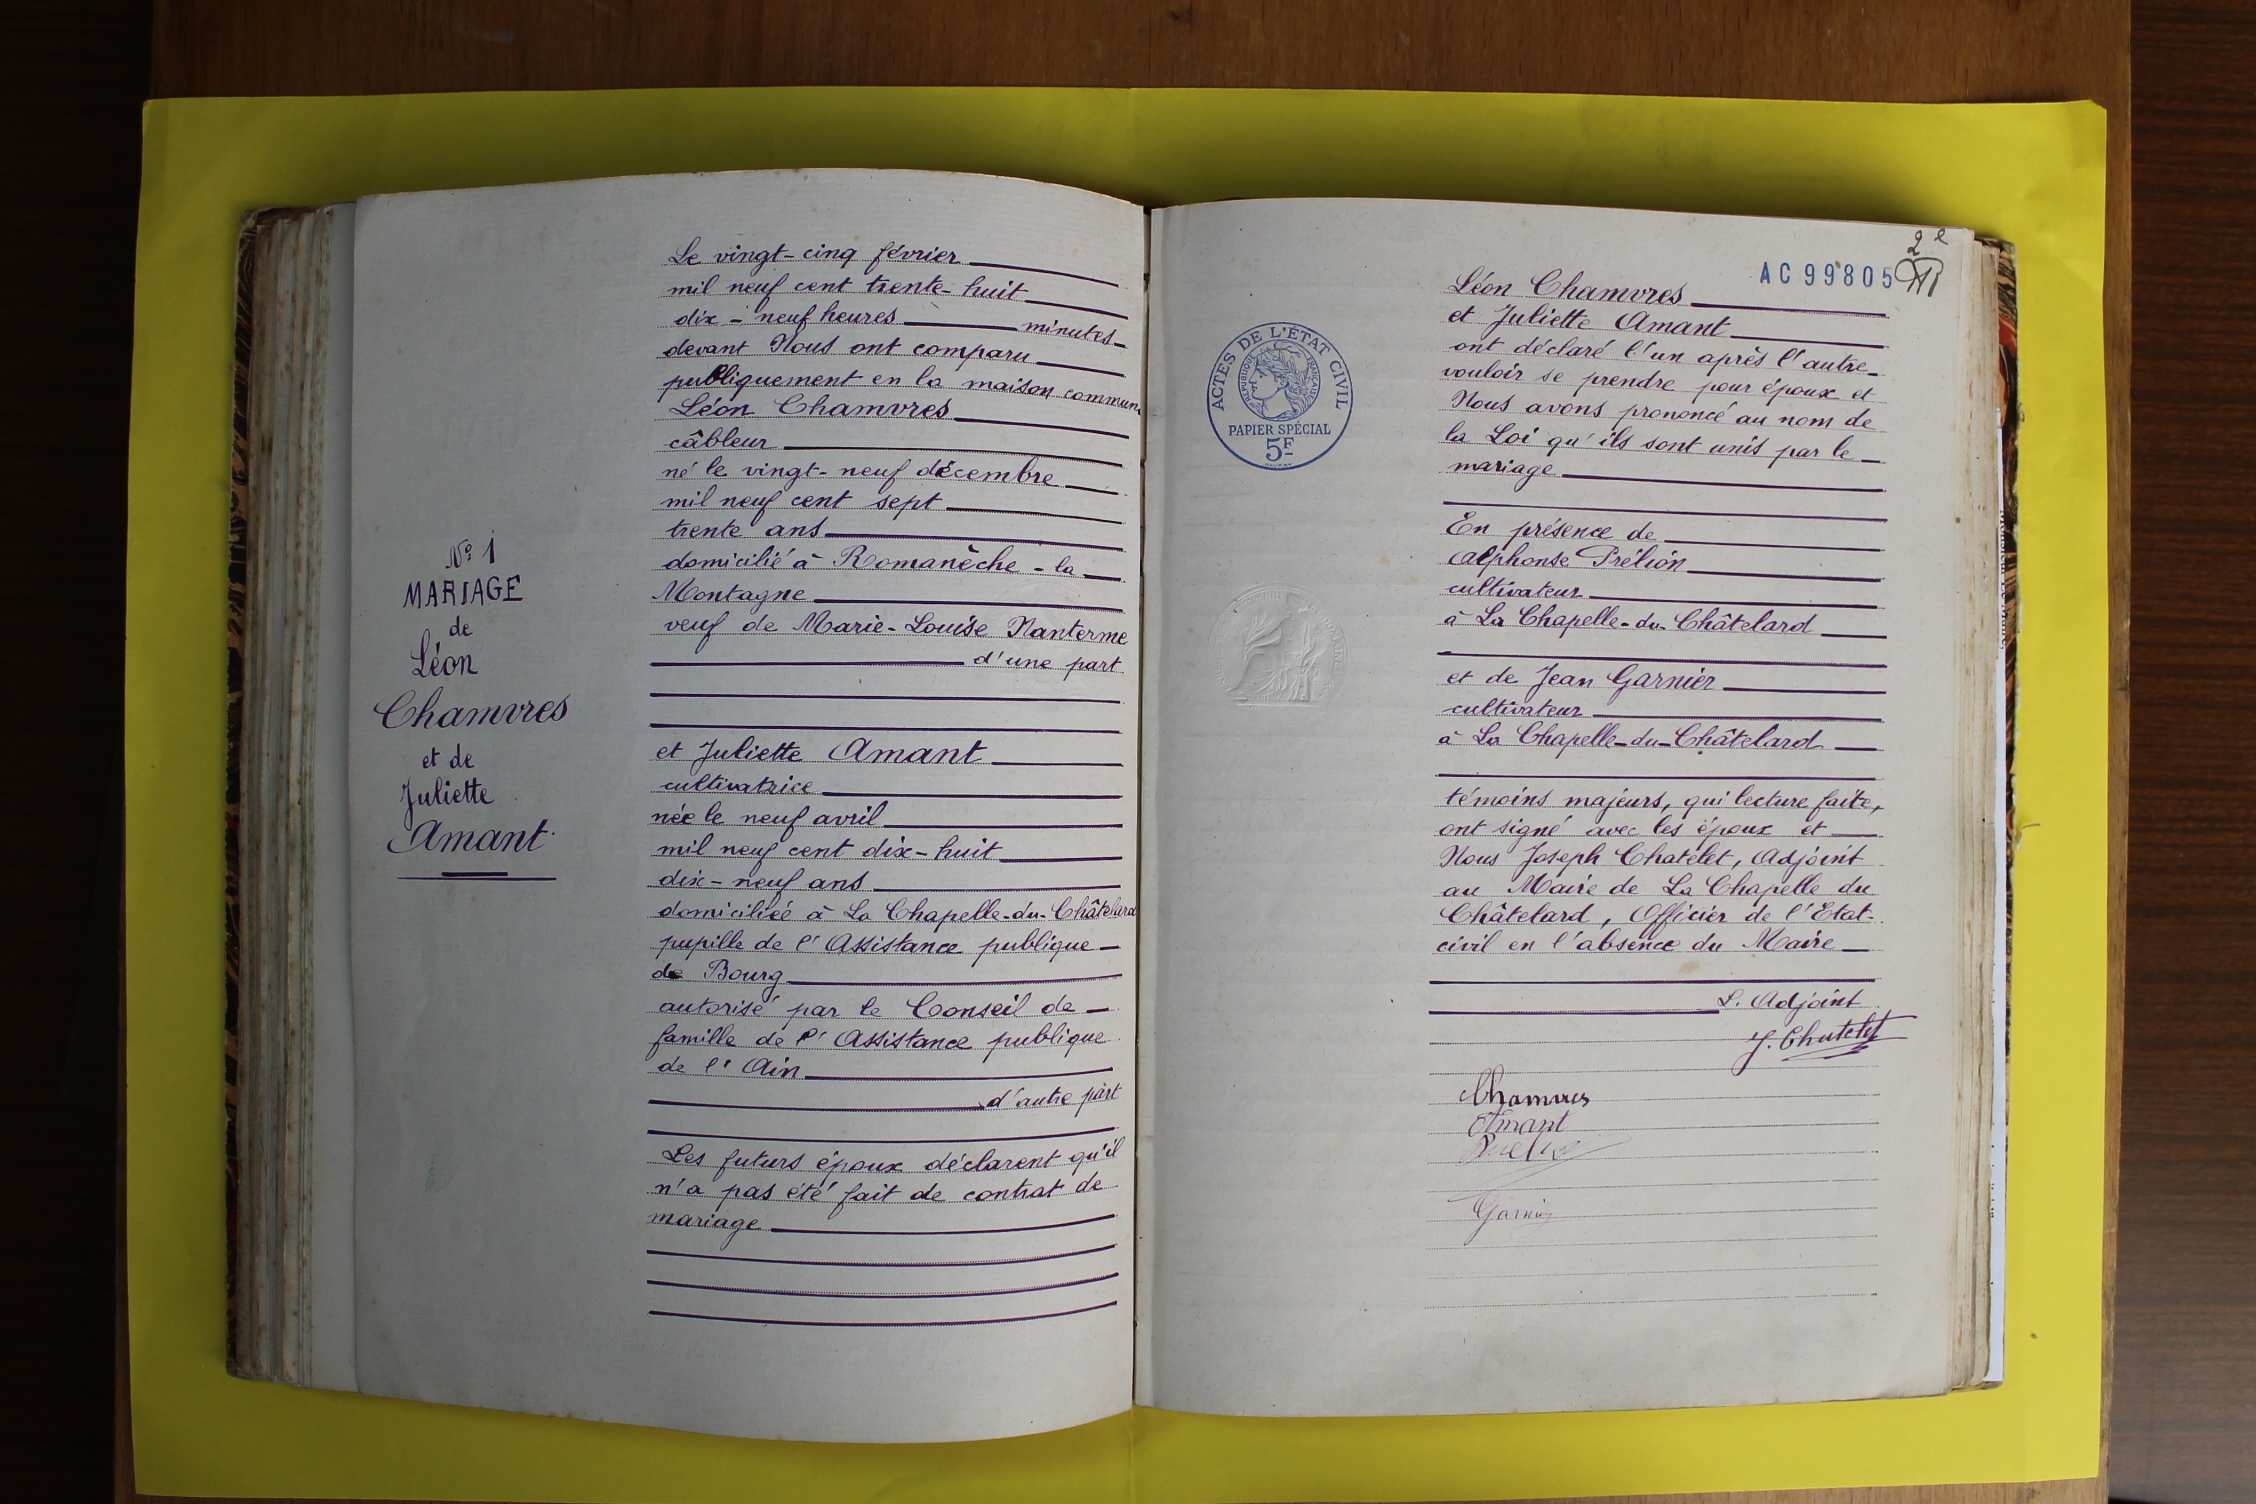 N° 1
MARIAGE
de
Léon
Chamvres
et de
Juliette
Amant
Le vingt-cinq février
mil neuf cent trente-huit
dix-neuf heures minutes
devant Nous ont comparu
publiquement en la maison commune
Léon Chamvres
câbleur
né le vingt-neuf décembre
mil neuf cent sept
trente ans
domicilié à Romanèche-la
Montagne
veuf de Marie-Louise Nanterme
d'une part
et Juliette Amant
cultivatrice
née le neuf avril
mil neuf cent dix-huit
dix-neuf ans
domiciliée à La Chapelle-du-Châtelard
pupille de l'Assistance publique
de Bourg
autorisé par le Conseil de
famille de l'Assistance publique
de l'Ain
d'autre part
Les futurs époux déclarent qu'il
n'a pas été fait de contrat de
mariage
2e
AC 99805
ACTES DE L'ÉTAT CIVIL
RÉPUBLIQUE FRANÇAISE
PAPIER SPÉCIAL
5F
Léon Chamvres
et Juliette Amant
ont déclaré l'un après l'autre
vouloir se prendre pour époux et
Nous avons prononcé au nom de
la Loi qu'ils sont unis par le
mariage
En présence de
Alphonse Prélion
cultivateur
à La Chapelle-du-Châtelard
et de Jean Garnier
cultivateur
à La Chapelle-du-Châtelard
témoins majeurs, qui lecture faite,
ont signé avec les époux et
Nous Joseph Chatelet, Adjoint
au Maire de La Chapelle du
Châtelard, Officier de l'Etat-
civil en l'absence du Maire
L. Adjoint
J. Chatelet
Chamvres
Amant
Garnier